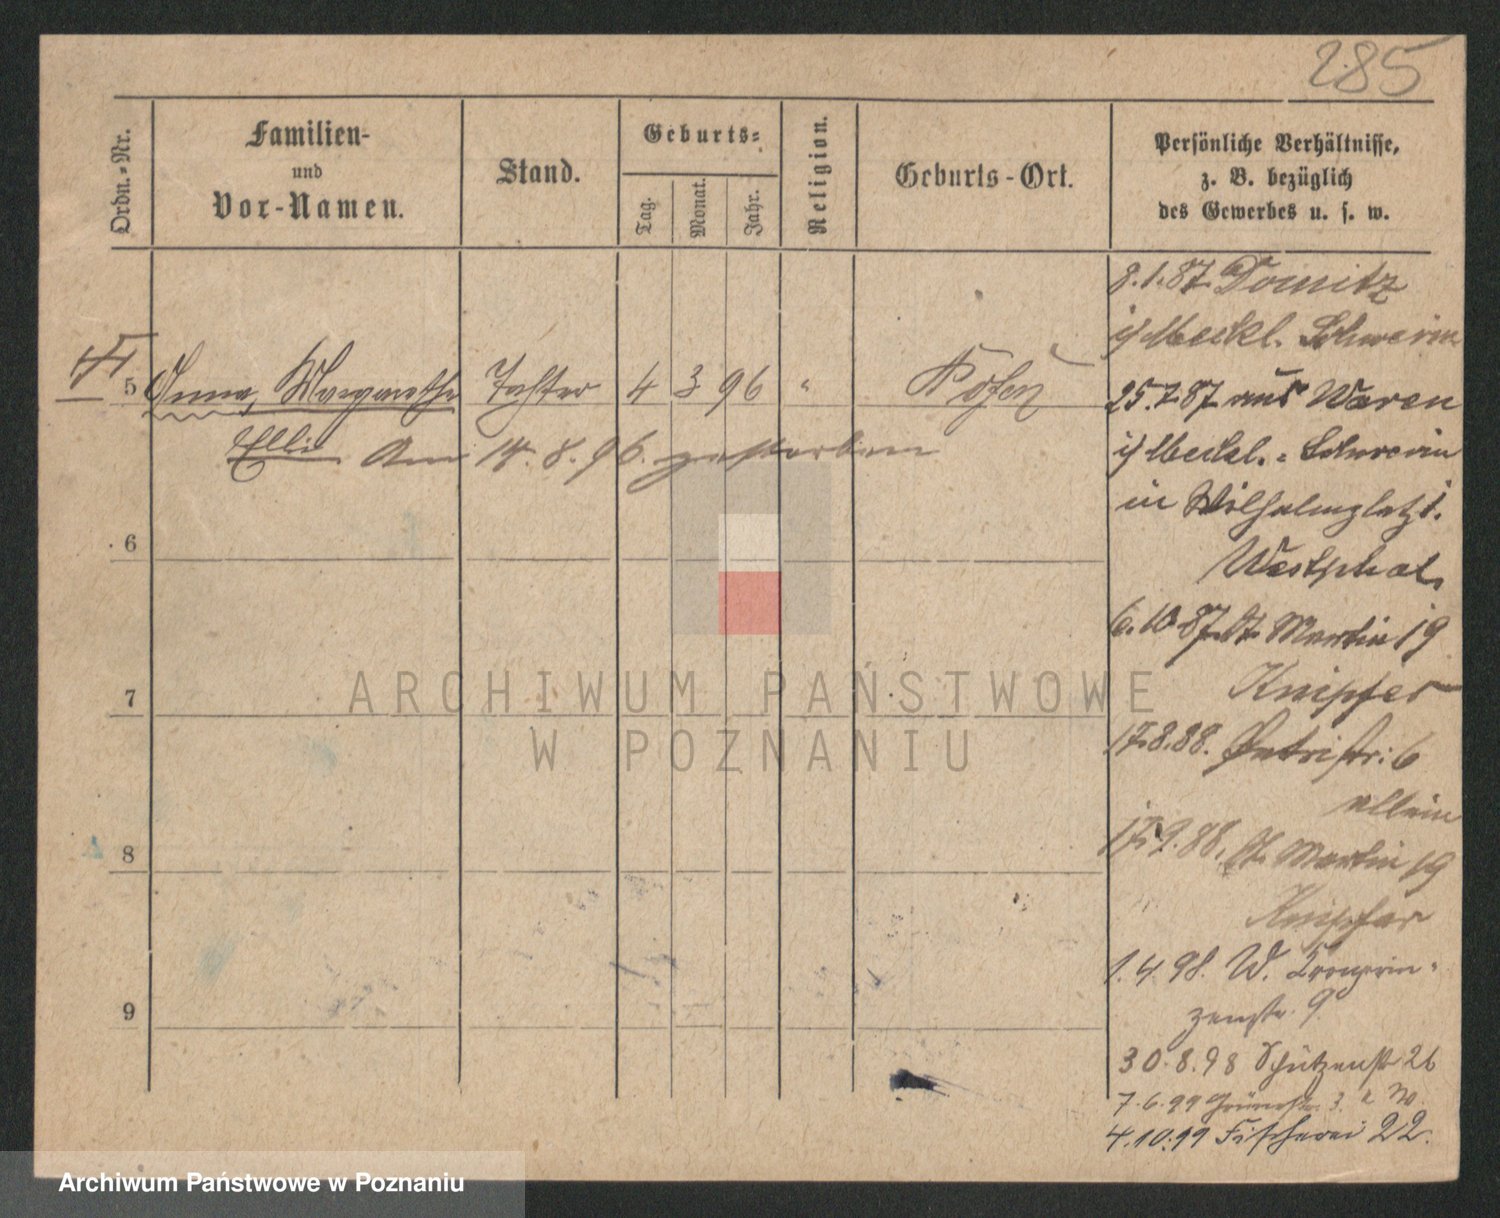 285
Ordn.-Nr.
Familien-
und
Vor-Namen.
Stand.
Geburts-
Tag.
Monat.
Jahr.
Religion.
Geburts-Ort.
Persönliche Verhältnisse,
z. B. bezüglich
des Gewerbes u. s. w.
8.1.87. Domitz
i/ Meckl. Schwerin
5 Anna, Margarethe Tochter 4 3 96 " Posen
25.7.87 aus Waren
Elli Am 14.8.96. gestorben
i/ Meckl.-Schwerin
in Wilhelmsplatz 1.
6
Westphal.
6.10.87. St. Martin 19
Knipfer
7
17.8.88. Petristr. 6
allein
17.9.88. St. Martin 19
8
Knipfer
1.4.98. W. Kronprin-
zenstr. 9
9
30.8.98 Schützenstr 26
7.6.99 Grünestr. 3. W.
4.10.99 Fischerei 22.
ARCHIWUM PAŃSTWOWE
W POZNANIU
Archiwum Państwowe w Poznaniu